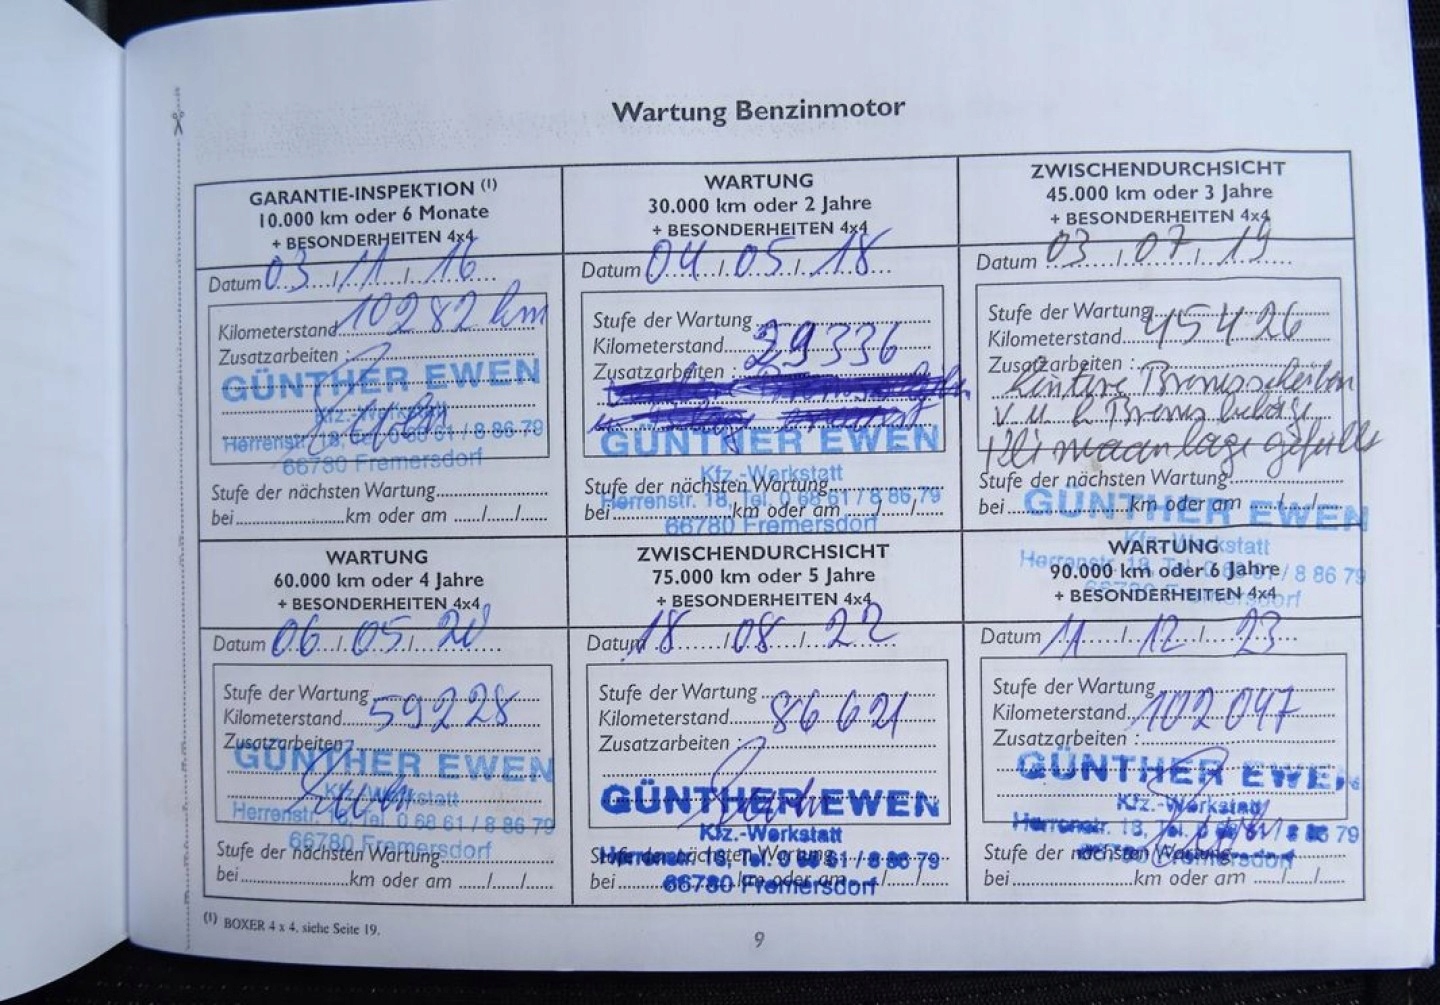 Wartung Benzinmotor
GARANTIE-INSPEKTION (1)
10.000 km oder 6 Monate
+ BESONDERHEITEN 4x4
Datum 03./11./.16
Kilometerstand 10282 km
Zusatzarbeiten :
GÜNTHER EWEN
Kfz.-Werkstatt
Herrenstr. 18, Tel. 0 68 61 / 8 86 79
66780 Fremersdorf
Stufe der nächsten Wartung
bei km oder am ...../...../.....
WARTUNG
30.000 km oder 2 Jahre
+ BESONDERHEITEN 4x4
Datum 04./.05./.18
Stufe der Wartung
Kilometerstand 29336
Zusatzarbeiten :
GÜNTHER EWEN
Kfz.-Werkstatt
Stufe der nächsten Wartung
Herrenstr. 18, Tel. 0 68 61 / 8 86 79
bei km oder am ...../...../.....
66780 Fremersdorf
ZWISCHENDURCHSICHT
45.000 km oder 3 Jahre
+ BESONDERHEITEN 4x4
Datum 03./.07./.19
Stufe der Wartung
Kilometerstand 45426
Zusatzarbeiten :
hintere Bremsscheiben
v. u. h Bremsbeläge
Klimaanlage gefüllt
Stufe der nächsten Wartung
bei km oder am ...../...../.....
GÜNTHER EWEN
Kfz.-Werkstatt
Herrenstr. 18, Tel. 0 68 61 / 8 86 79
66780 Fremersdorf
WARTUNG
60.000 km oder 4 Jahre
+ BESONDERHEITEN 4x4
Datum 06./.05./.20
Stufe der Wartung
Kilometerstand 59228
Zusatzarbeiten :
GÜNTHER EWEN
Kfz.-Werkstatt
Herrenstr. 18, Tel. 0 68 61 / 8 86 79
66780 Fremersdorf
Stufe der nächsten Wartung
bei km oder am ...../...../.....
ZWISCHENDURCHSICHT
75.000 km oder 5 Jahre
+ BESONDERHEITEN 4x4
Datum 18./.08./.22
Stufe der Wartung
Kilometerstand 86621
Zusatzarbeiten :
GÜNTHER EWEN
Kfz.-Werkstatt
Stufe der nächsten Wartung
Herrenstr. 18, Tel. 0 68 61 / 8 86 79
bei km oder am ...../...../.....
66780 Fremersdorf
WARTUNG
90.000 km oder 6 Jahre
+ BESONDERHEITEN 4x4
Datum 11./.12./.23
Stufe der Wartung
Kilometerstand 102047
Zusatzarbeiten :
GÜNTHER EWEN
Kfz.-Werkstatt
Herrenstr. 18, Tel. 0 68 61 / 8 86 79
66780 Fremersdorf
Stufe der nächsten Wartung
bei km oder am ...../...../.....
(1) BOXER 4 x 4, siehe Seite 19.
9